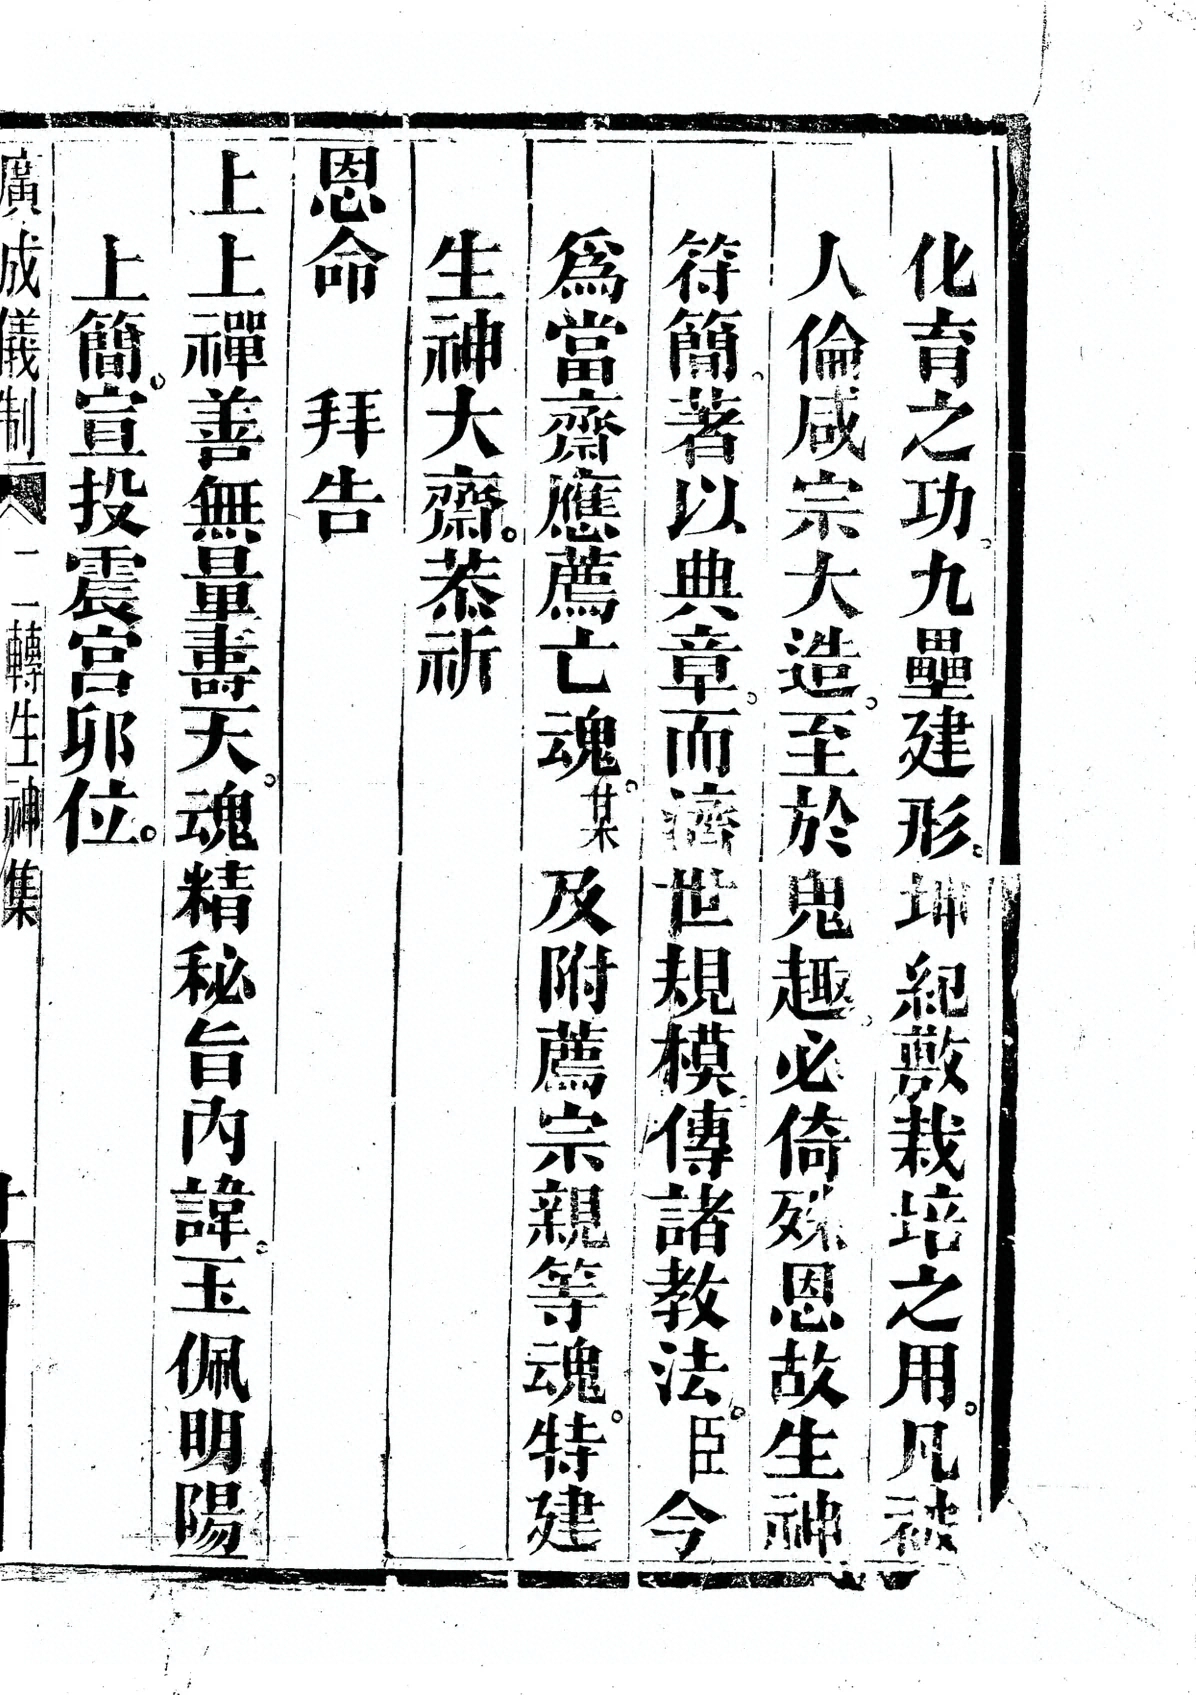 化育之功。九壘建形。坤紀敷栽培之用。凡被
人倫咸宗大造。至於鬼趣。必倚殊恩故生神
符簡。著以典章。而濟世規模。傳諸教法。臣今
爲當齋應薦亡魂。某及附薦宗親等魂。特建
生神大齋。恭祈
恩命　拜告
上上禪善無量壽天。魂精秘旨內諱。玉佩明陽
上簡。宣投震宮卯位。
廣成儀制　二　二轉生神集　十